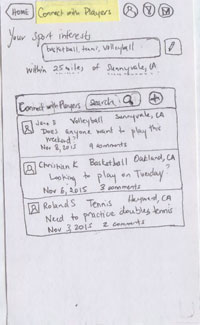 HOME Connect with Players
Your Sport interests
basketball, tennis, volleyball
Within 25 miles of Sunnyvale, CA
Connect with Players Search
Jane D Volleyball Sunnyvale, CA
Does anyone want to play this
weekend?
Nov 8, 2015 9 comments
Christian K Basketball Oakland, CA
Looking to play on Tuesday?
Nov 6, 2015 3 comments
Roland S Tennis Hayward, CA
Need to practice doubles tennis
Nov 3, 2015 2 comments